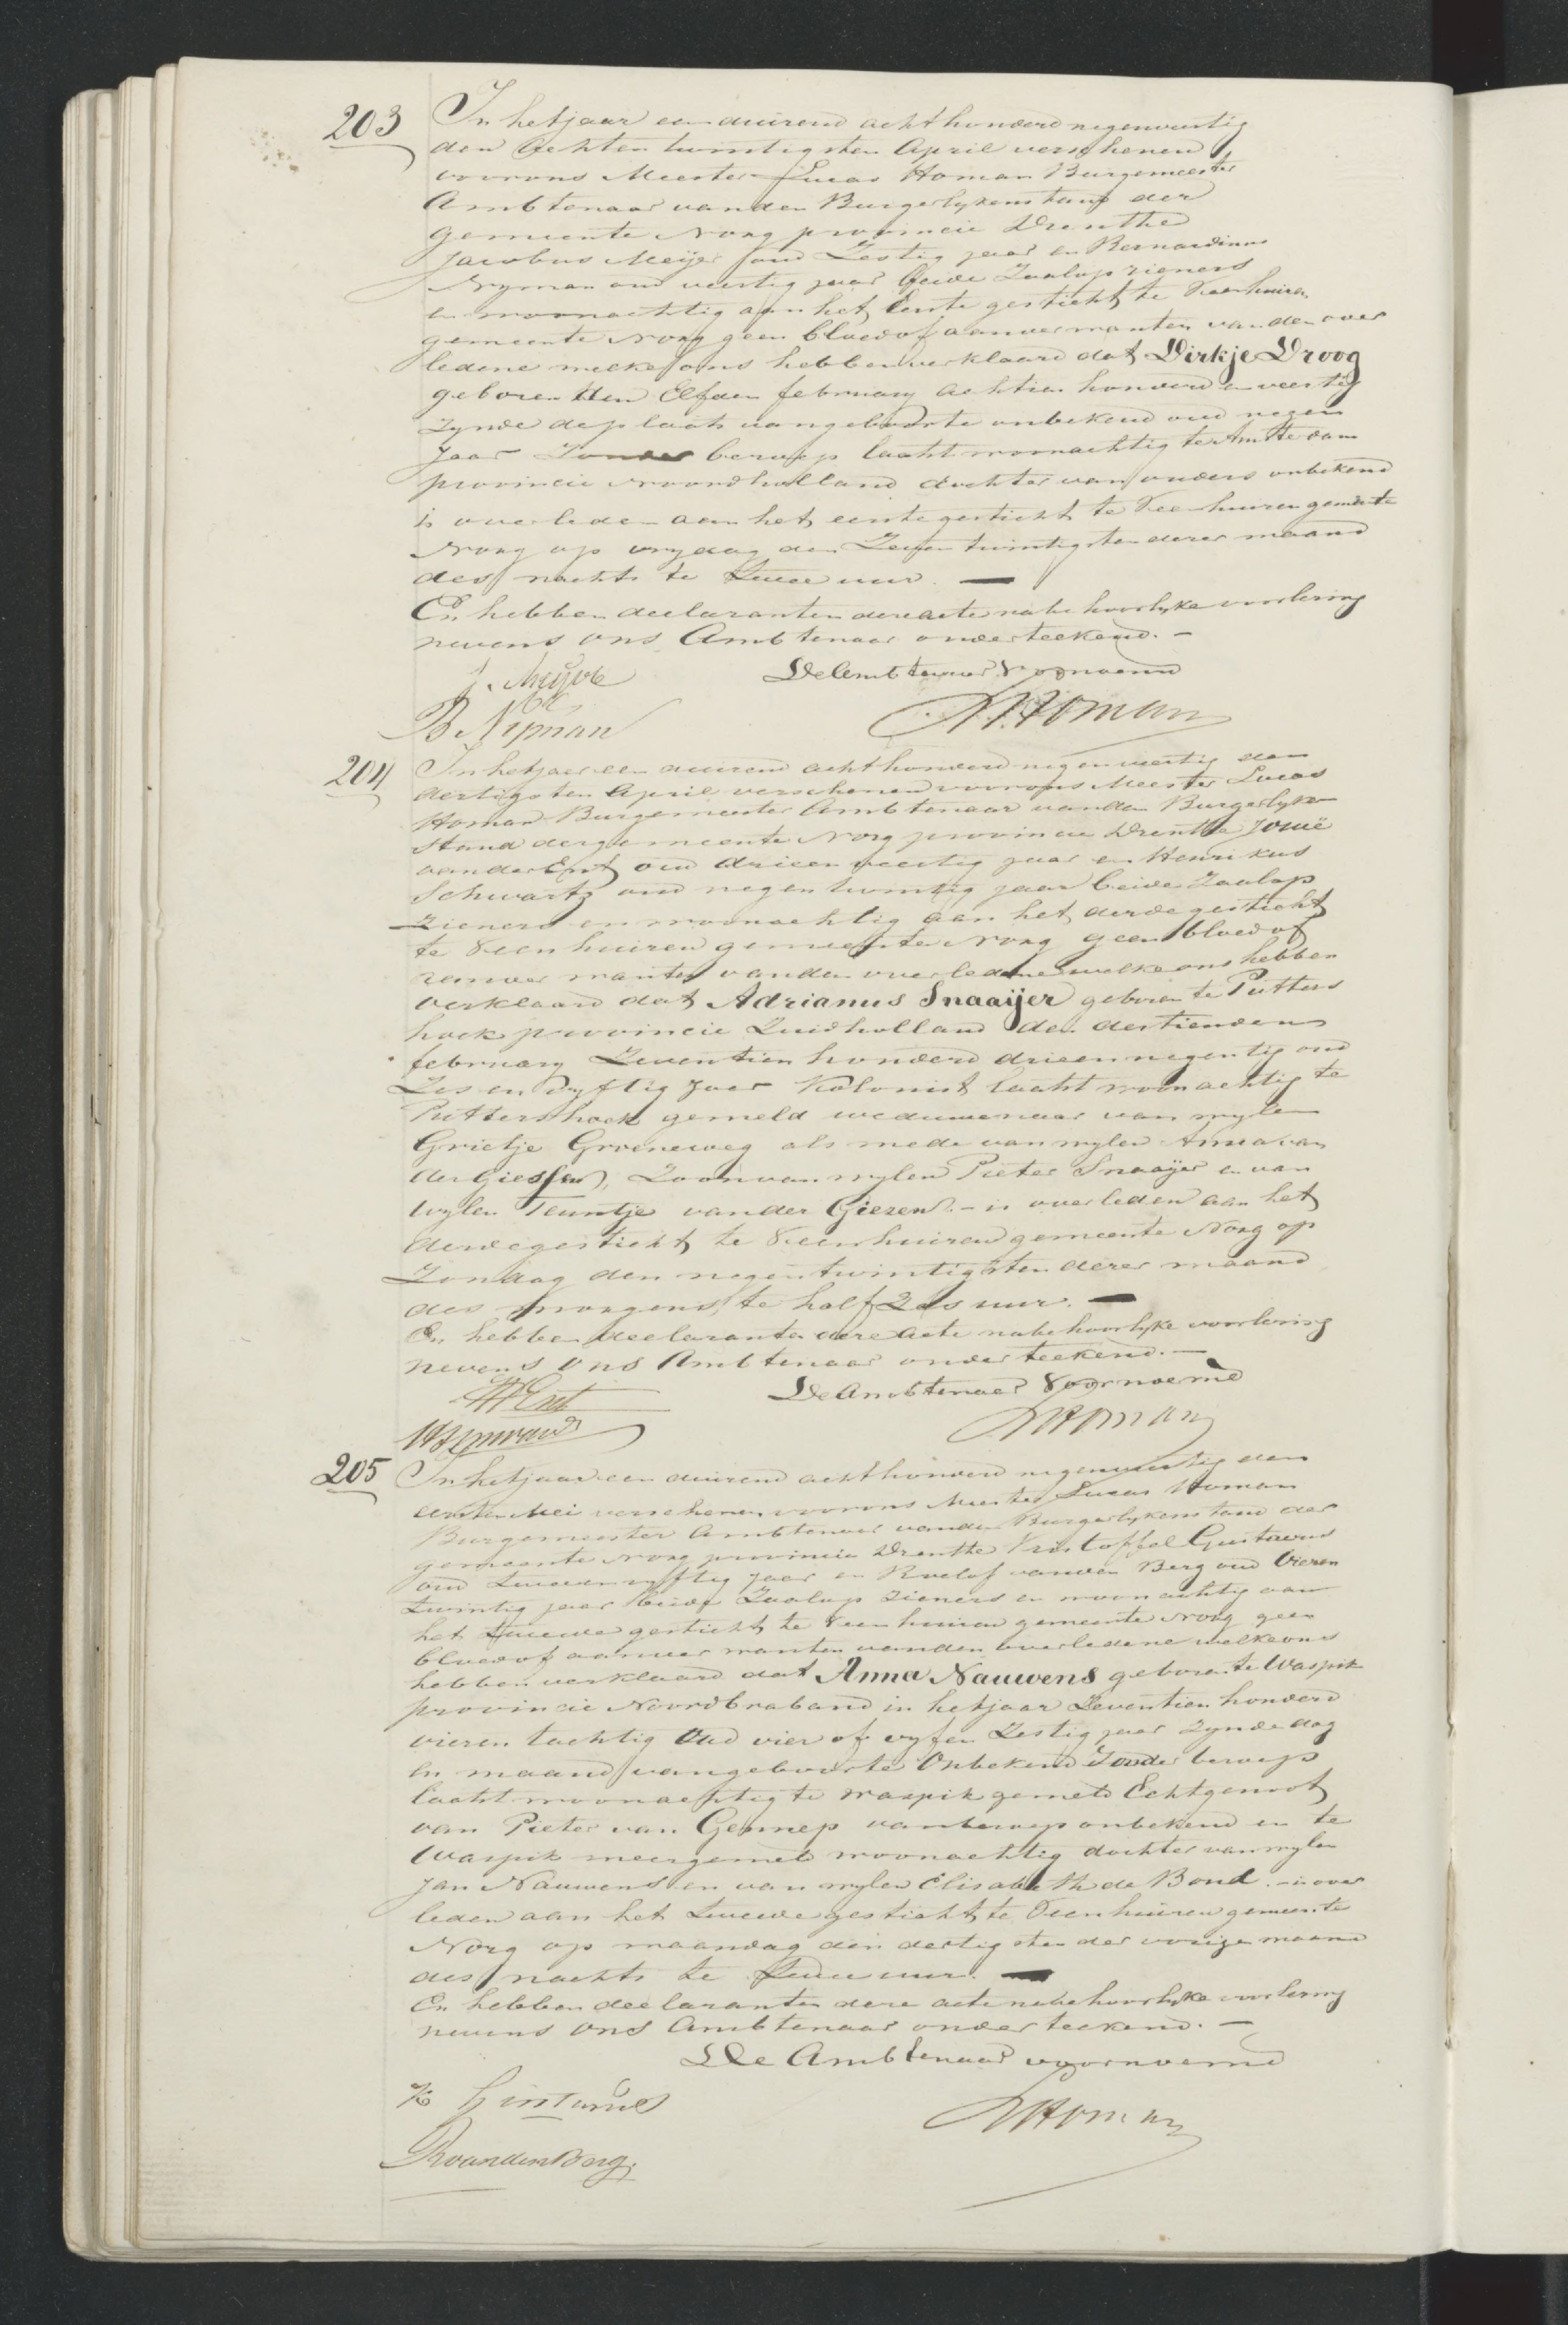 203
In het jaar een duizend acht honderd negenveertig
den Achten twintigsten April verschenen
voor ons Meester Lucas Homan Burgemeester
Ambtenaar van den Burgerlyken stand der
gemeente Norg provincie Drenthe
Jacobus Meijer oud Zestig jaar en Bernardinus
Nyman oud veertig jaar beide Zaalopzieners
en woonachtig aan het Eerste gesticht te Veenhuizen
gemeente Norg geen bloed of aanverwanten van den over
ledene welke ons hebben verklaard dat Dirkje Droog
geboren den Elfden february achttien honderd en veertig
Zynde de plaats van geboorte onbekend oud negen
Jaar Zonder beroep laatst woonachtig te Amsterdam
provincie Noordholland dochter van ouders onbekend
is overleden aan het eerste gesticht te Veenhuizen gemeente
Norg op vrydag den Zeven twintigsten dezer maand
des nachts te twee uur. —
En hebben declaranten deze acte na behoorlyke voorlezing
nevens ons Ambtenaar onderteekend. —
J. Meijer De Ambtenaar voornoemd
B. Nyman LHoman
204
In het jaar een duizend acht honderd negenveertig den
dertigsten April verschenen voor ons Meester Lucas
Homan Burgemeester Ambtenaar van den Burgerlyken
Stand der gemeente Norg provincie Drenthe Josuë
van der Ent oud drieen veertig jaar en Henrikus
Schwartz oud negen twintig jaar beide Zaalop
Zieners en woonachtig aan het derde gesticht
te Veenhuizen gemeente Norg geen bloed of
aanver wanten van den overledene welke ons hebben
verklaard dat Adrianus Snaaijer geboren te Putters
hoek provincie Zuidholland den dertienden
february Zeventien honderd drieen negentig oud
Zes en vyftig Jaar Kolonist laatst woonachtig te
Puttershoek gemeld weduwenaar van wylen
Grietje Groeneweg als mede van wylen Anna van
der Giessen, Zoon van wylen Pieter Snaaijer en van
wylen Teuntje van der Giezen. – is overleden aan het
derde gesticht te Veenhuizen gemeente Norg op
Zondag den negen twintigsten dezer maand
des morgens te half Zes uur. —
En hebben declaranten deze Acte na behoorlyke voorlezing
nevens ons Ambtenaar onderteekend. —
De Ambtenaar Voornoemd
LHoman
205
In het jaar een duizend acht honderd negenveertig den
eersten Mei verschenen voor ons Meester Lucas Homan
Burgemeester Ambtenaar van den Burgerlyken stand der
gemeente Norg provincie Drenthe Kristoffel Gustavus
oud Tweeen vyftig jaar en Roelof van den Berg oud Vieren
twintig jaar beide Zaalop Zieners en woonachtig aan
het tweede gesticht te Veenhuizen gemeente Norg geen
bloed of aanver wanten van den overledene welke ons
hebben verklaard dat Anna Nauwens geboren te Waspik
provincie Noordbraband in het jaar Zeventien honderd
vieren tachtig Oud vier of vyfen Zestig jaar Zynde dag
en maand van geboorte Onbekend Zonder beroep
laatst woonachtig te Waspik gemeld Echtgenoot
van Pieter van Gennep van beroep onbekend en te
Waspik meergemeld woonachtig dochter van wylen
Jan Nauwens en van wylen Elisabeth de Bond. – is over
leden aan het Tweede gesticht te Veenhuizen gemeente
Norg op maandag den dertigsten der vorige maand
des nachts te twee uur. —
En hebben declaranten deze acte na behoorlyke voorlezing
nevens ons Ambtenaar onderteekend. —
De Ambtenaar voornoemd
K Gustavus LHoman
R van den Berg.